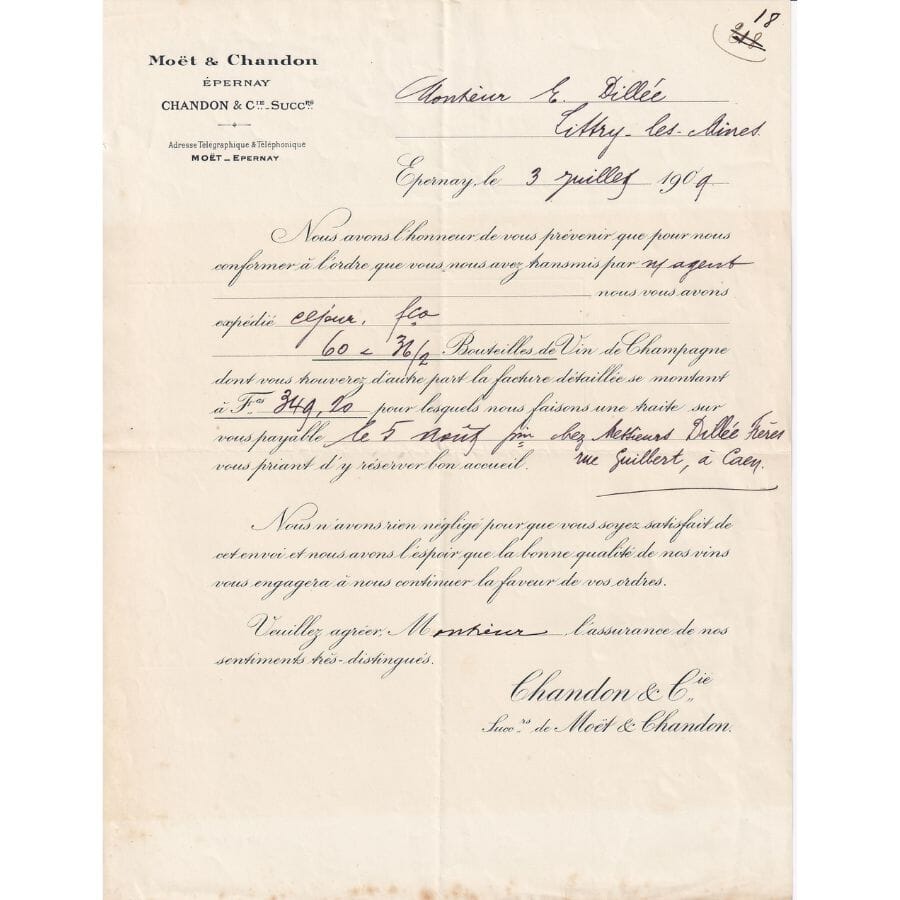 18
Moët & Chandon
ÉPERNAY
CHANDON & Cie-Succrs
Adresse Télégraphique & Téléphonique
MOËT-EPERNAY
Monsieur E. Dillée
Littry-les-Mines
Epernay, le 3 juillet 1909
Nous avons l'honneur de vous prévenir que pour nous
conformer à l'ordre que vous nous avez transmis par n/ agent
nous vous avons
expédié ce jour, fco
60 36/2 Bouteilles de Vin de Champagne
dont vous trouverez d'autre part la facture détaillée se montant
à Fcs 349,20 pour lesquels nous faisons une traite sur
vous payable le 5 août pin chez Messieurs Dillée Frères
rue Guilbert, à Caen.
vous priant d'y réserver bon accueil.
Nous n'avons rien négligé pour que vous soyez satisfait de
cet envoi et nous avons l'espoir que la bonne qualité de nos vins
vous engagera à nous continuer la faveur de vos ordres.
Veuillez agréer, Monsieur l'assurance de nos
sentiments très-distingués.
Chandon & Cie
Succrs de Moët & Chandon.